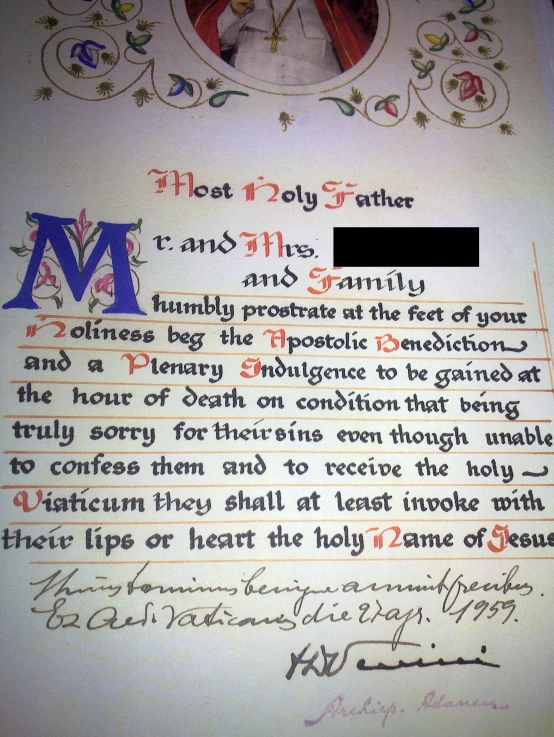 Most Holy Father
Mr. and Mrs.
and Family
humbly prostrate at the feet of your
Holiness beg the Apostolic Benediction
and a Plenary Indulgence to be gained at
the hour of death on condition that being
truly sorry for their sins even though unable
to confess them and to receive the holy
Viaticum they shall at least invoke with
their lips or heart the holy Name of Jesus
benigne annuit precibus.
Ex Aed. Vaticanis die 1959.
Archiep. Adanen